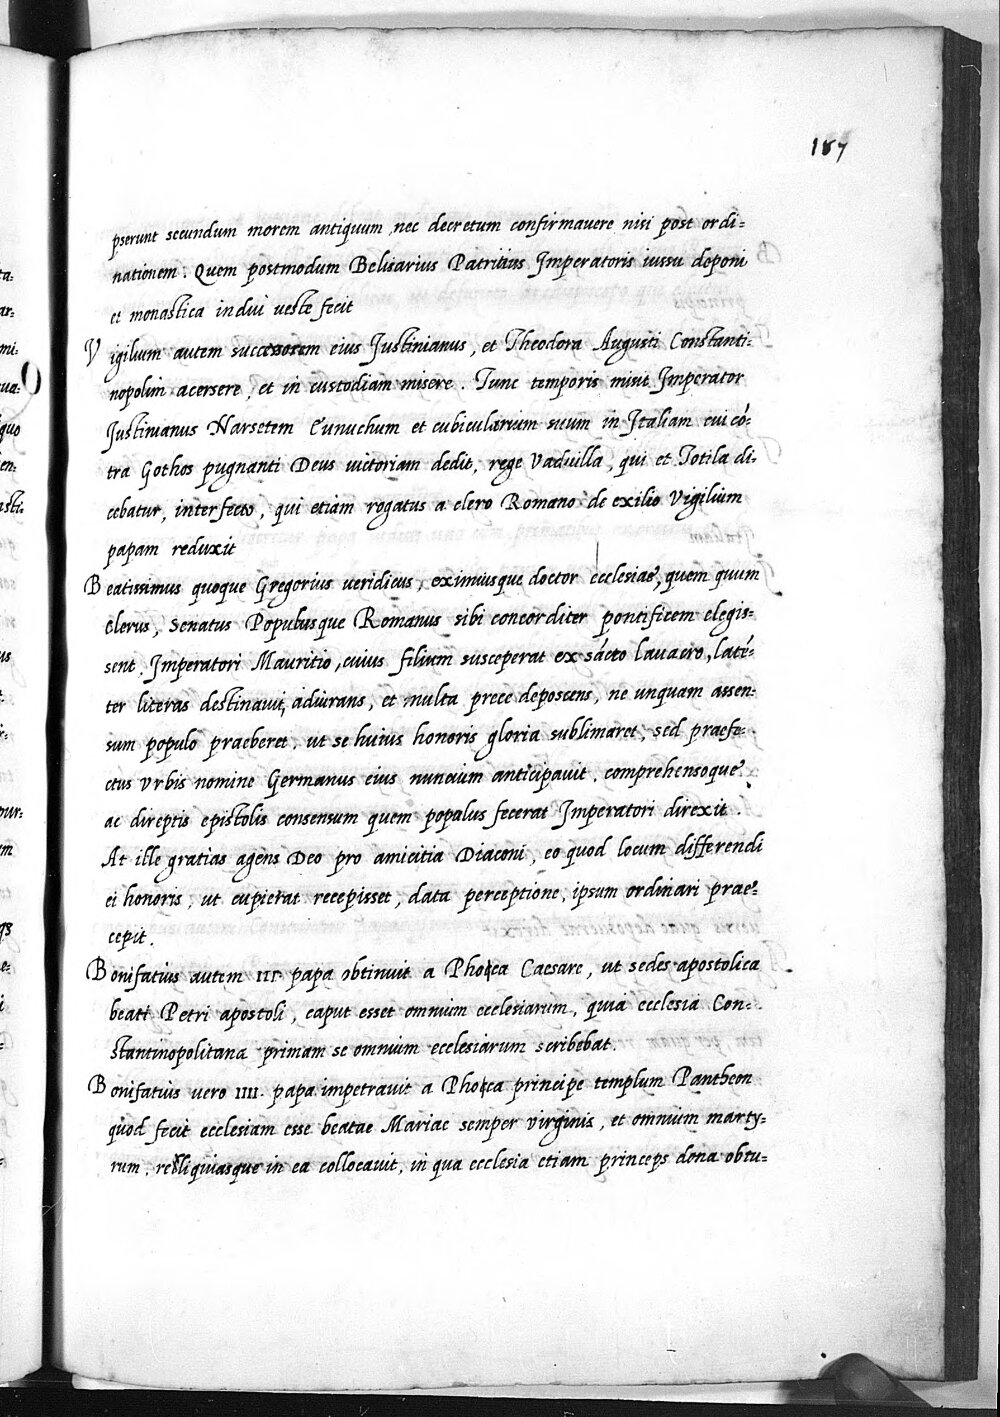 187
pserunt secundum morem antiquum nec decretum confirmavere nisi post ordi=
nationem. Quem postmodum Belisarius Patritius Imperatoris iussu deponi
et monastica indui veste fecit
Vigilium autem successorem eius Justinianus, et Theodora Augusti Constanti=
nopolim acersere, et in custodiam misere. Tunc temporis misit Imperator
Justinianus Narsetem Eunuchum et cubicularium suum in Italiam cui có=
tra Gothos pugnanti Deus uictoriam dedit, rege Vaduilla, qui et Totila di=
cebatur, interfecto, qui etiam rogatus a clero Romano de exilio Vigilium
papam reduxit
Beatissimus quoque Gregorius ueridicus, eximiusque doctor ecclesiae, quem quum
Clerus, Senatus Populusque Romanus sibi concorditer pontificem elegis=
sent. Imperatori Mauritio, cuius filium susceperat ex sácto lauacro, laté=
ter literas destinauit, adiurans, et multa prece deposcens, ne unquam assen=
sum populo praeberet, ut se huius honoris gloria sublimaret, sed praefe=
ctus Vrbis nomine Germanus eius nuncium anticipauit, comprehensoque
ac direptis epistolis consensum quem populus fecerat Imperatori direxit.
At ille gratias agens Deo pro amicitia Diaconi, eo quod locum differendi
ei honoris, ut cupierat recepisset, data perceptione, ipsum ordinari prae=
cepit.
Bonifatius autem III papa obtinuit a Phoca Caesare, ut sedes apostolica
beati Petri apostoli, caput esset omnium ecclesiarum, quia ecclesia Con=
stantinopolitana primam se omnium ecclesiarum scribebat.
Bonifatius vero IIII. papa impetrauit a Phoca principe templum Pantheon
quod fecit ecclesiam esse beatae Mariae semper virginis, et omnium marty=
rum. reliquiasque in ea collocauit, in qua ecclesia etiam princeps dona obtu=